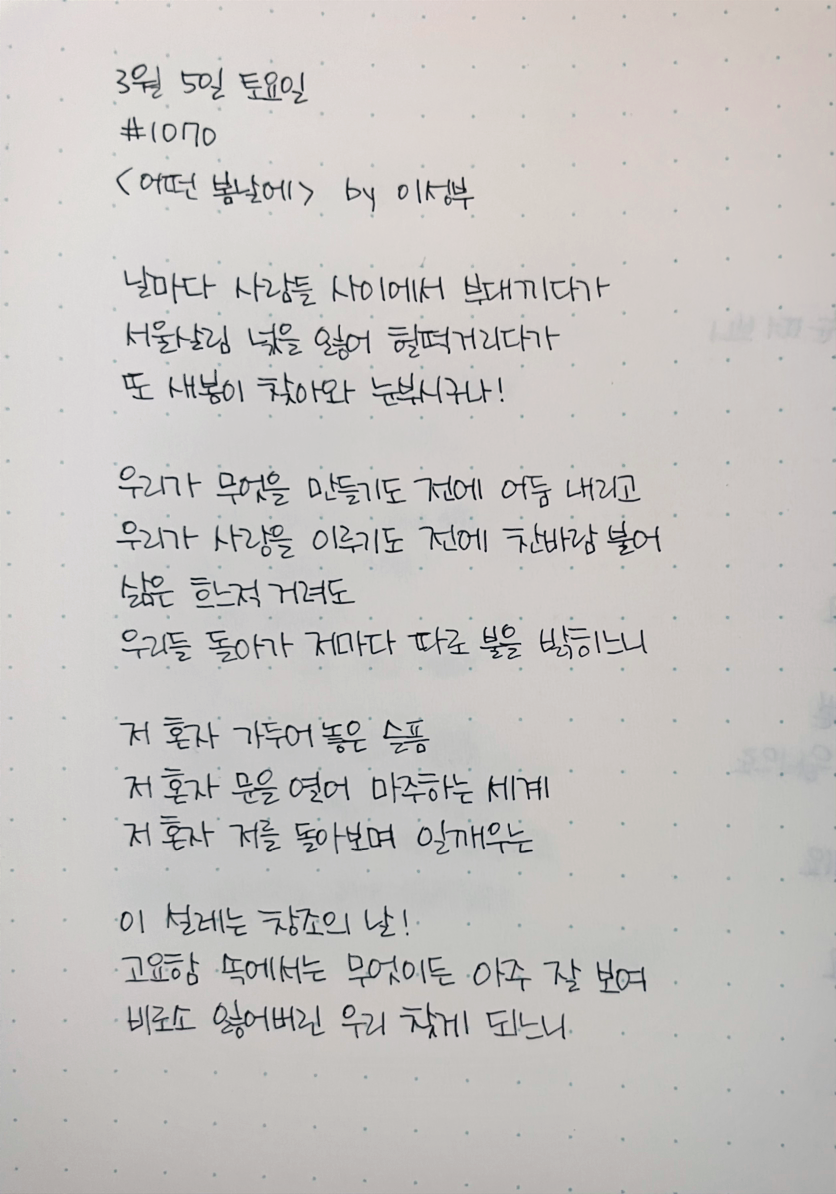 3월 5일 토요일
#1070
<어떤 봄날에> by 이성부
날마다 사람들 사이에서 부대끼다가
서울살림 넋을 잃어 헐떡거리다가
또 새봄이 찾아와 눈부시구나!
우리가 무엇을 만들기도 전에 어둠 내리고
우리가 사랑을 이루기도 전에 찬바람 불어
삶은 흐느적거려도
우리들 돌아가 저마다 따로 불을 밝히느니
저 혼자 가두어 놓은 슬픔
저 혼자 문을 열어 마주하는 세계
저 혼자 저를 돌아보며 일깨우는
이 설레는 창조의 날!
고요함 속에서는 무엇이든 아주 잘 보여
비로소 잃어버린 우리 찾게 되느니